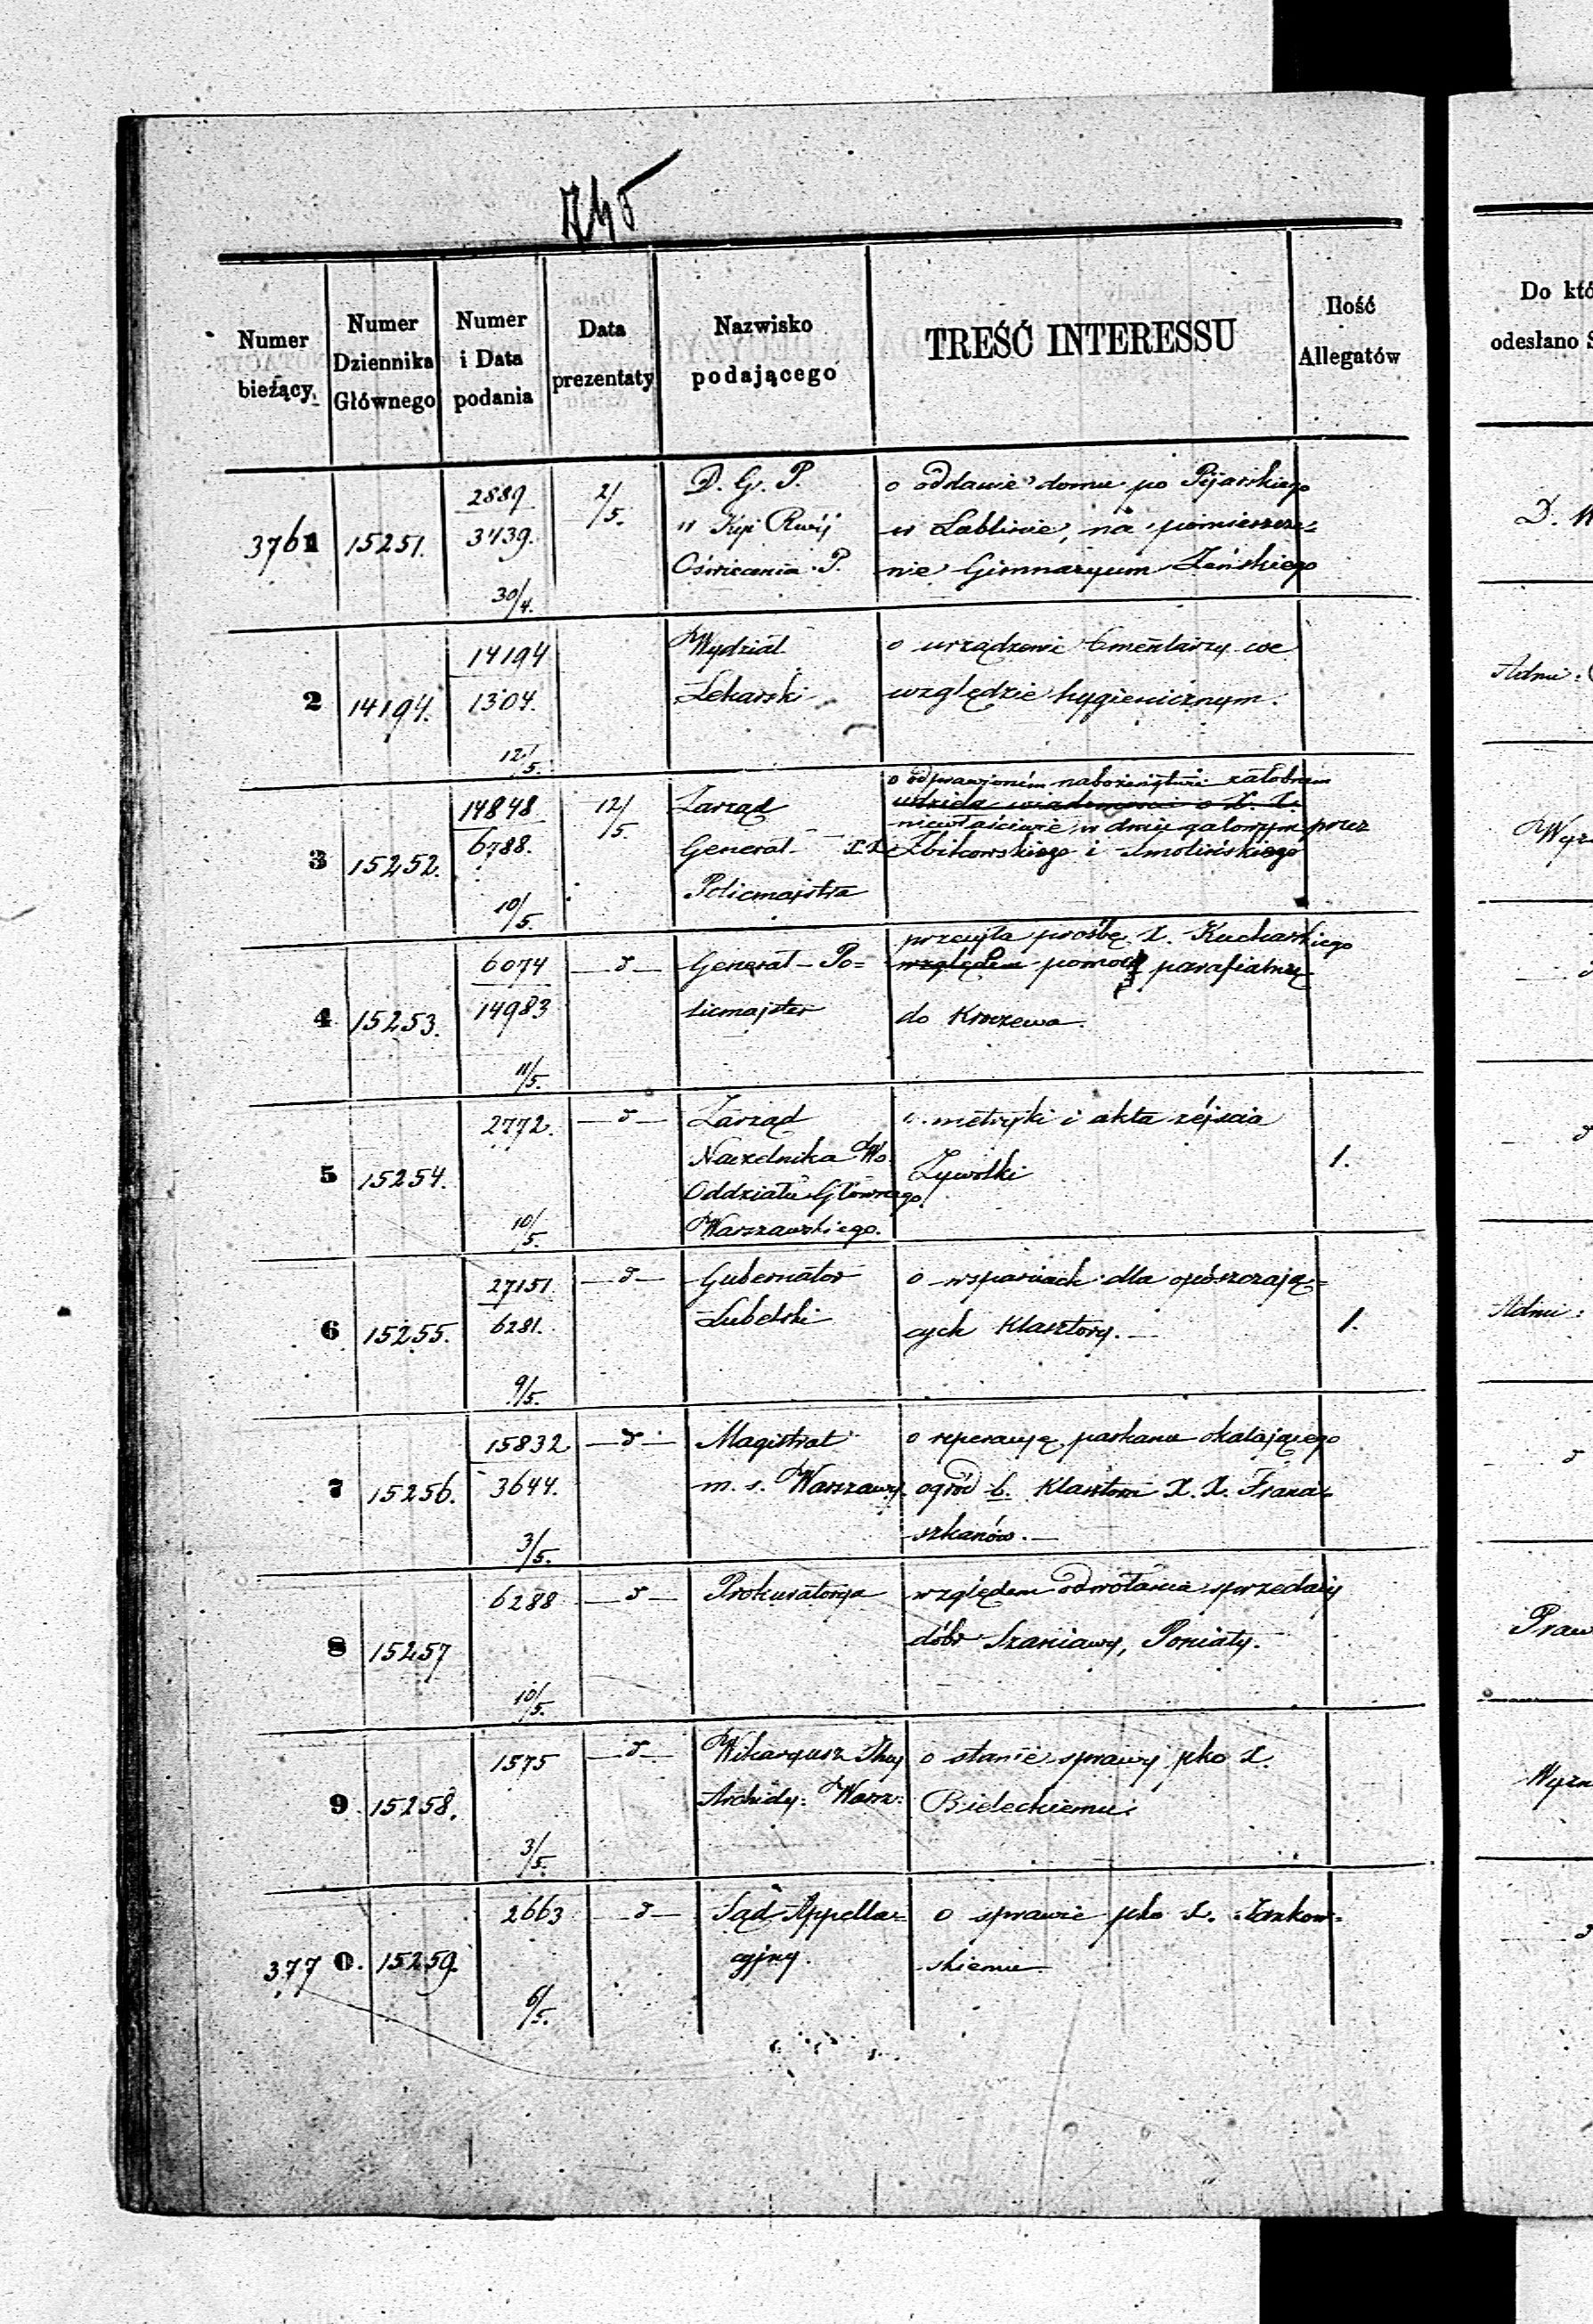 745
Numer bieżący.
Numer Dziennika Głównego
Numer i Data podania
Data prezentaty
Nazwisko podającego
TREŚĆ INTERESSU
Ilość Allegatów
Do któ
odesłano S
3761 15251. 2889 3439. 30/4. 2/5.
D. G. P.
w Kip Rwij
Oświecenia P.
o oddanie domu po Pijarskiego
w Lublinie, na pomieszcze=
nie Gimnazyum Żeńskiego
D.
2 14194. 14194 1304. 12/5.
Wydział
Lekarski
o urządzenie Cmentarzy we
względzie hygienicznym.
Admi:
3 15252. 14848 6788. 10/5. 12/5.
Zarząd
Generał-
Policmajstra
o odprawioném nabożeństwie żałobnem
udziela wiadomość o X. X.
niewłaściwie w dniu galowym przez
X.X. Zbikowskiego i Smolińskiego
Wyz
4 15253. 6074 14983 11/5. —d—
Generał-Po=
licmajster
przesyła prośbę X. Kucharskiego
względem pomocy parafialnej
do Kroczewa.
5 15254. 2772. 10/5. —d—
Zarząd
Naczelnika Wo.
Oddziału Głównego
Warszawskiego.
o metryki i akta zejścia
Zywolki
1.
d
6 15255. 27151 6281. 9/5. —d—
Gubernator
Lubelski
o wsparciach dla opószczają=
cych Klasztory.—
1.
Admi:
7 15256. 15832 3644. 3/5. —d—
Magistrat
m. s. Warszawy.
o reperacyę parkanu okalającego
ogród b. Klasztoru X. X. Franci=
szkanów.—
d
8 15257 6288 10/5. —d—
Prokuratorya
względem odwołania sprzedaży
dóbr Szaniawy, Poniaty.
Praw
9 15258. 1575 3/5. —d—
Wikaryusz
Archidy: Warsz:
o stanie sprawy pko X.
Bieleckiemu.
Wyzn
3770. 15259. 2663 6/5. —d—
Sąd Appella=
cyjny.
o sprawie pko X. Żankow=
skiemu